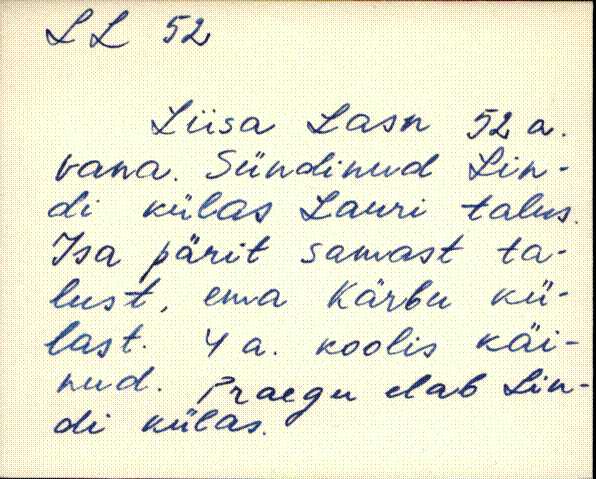 LL 52
Liisa Lasn 52 a.
vana. Sündinud Lin-
di külas Lauri talus.
Isa pärit samast ta-
lust, ema Kärbu kü-
last. 4 a. koolis käi-
nud. Praegu elab Lin-
di külas.